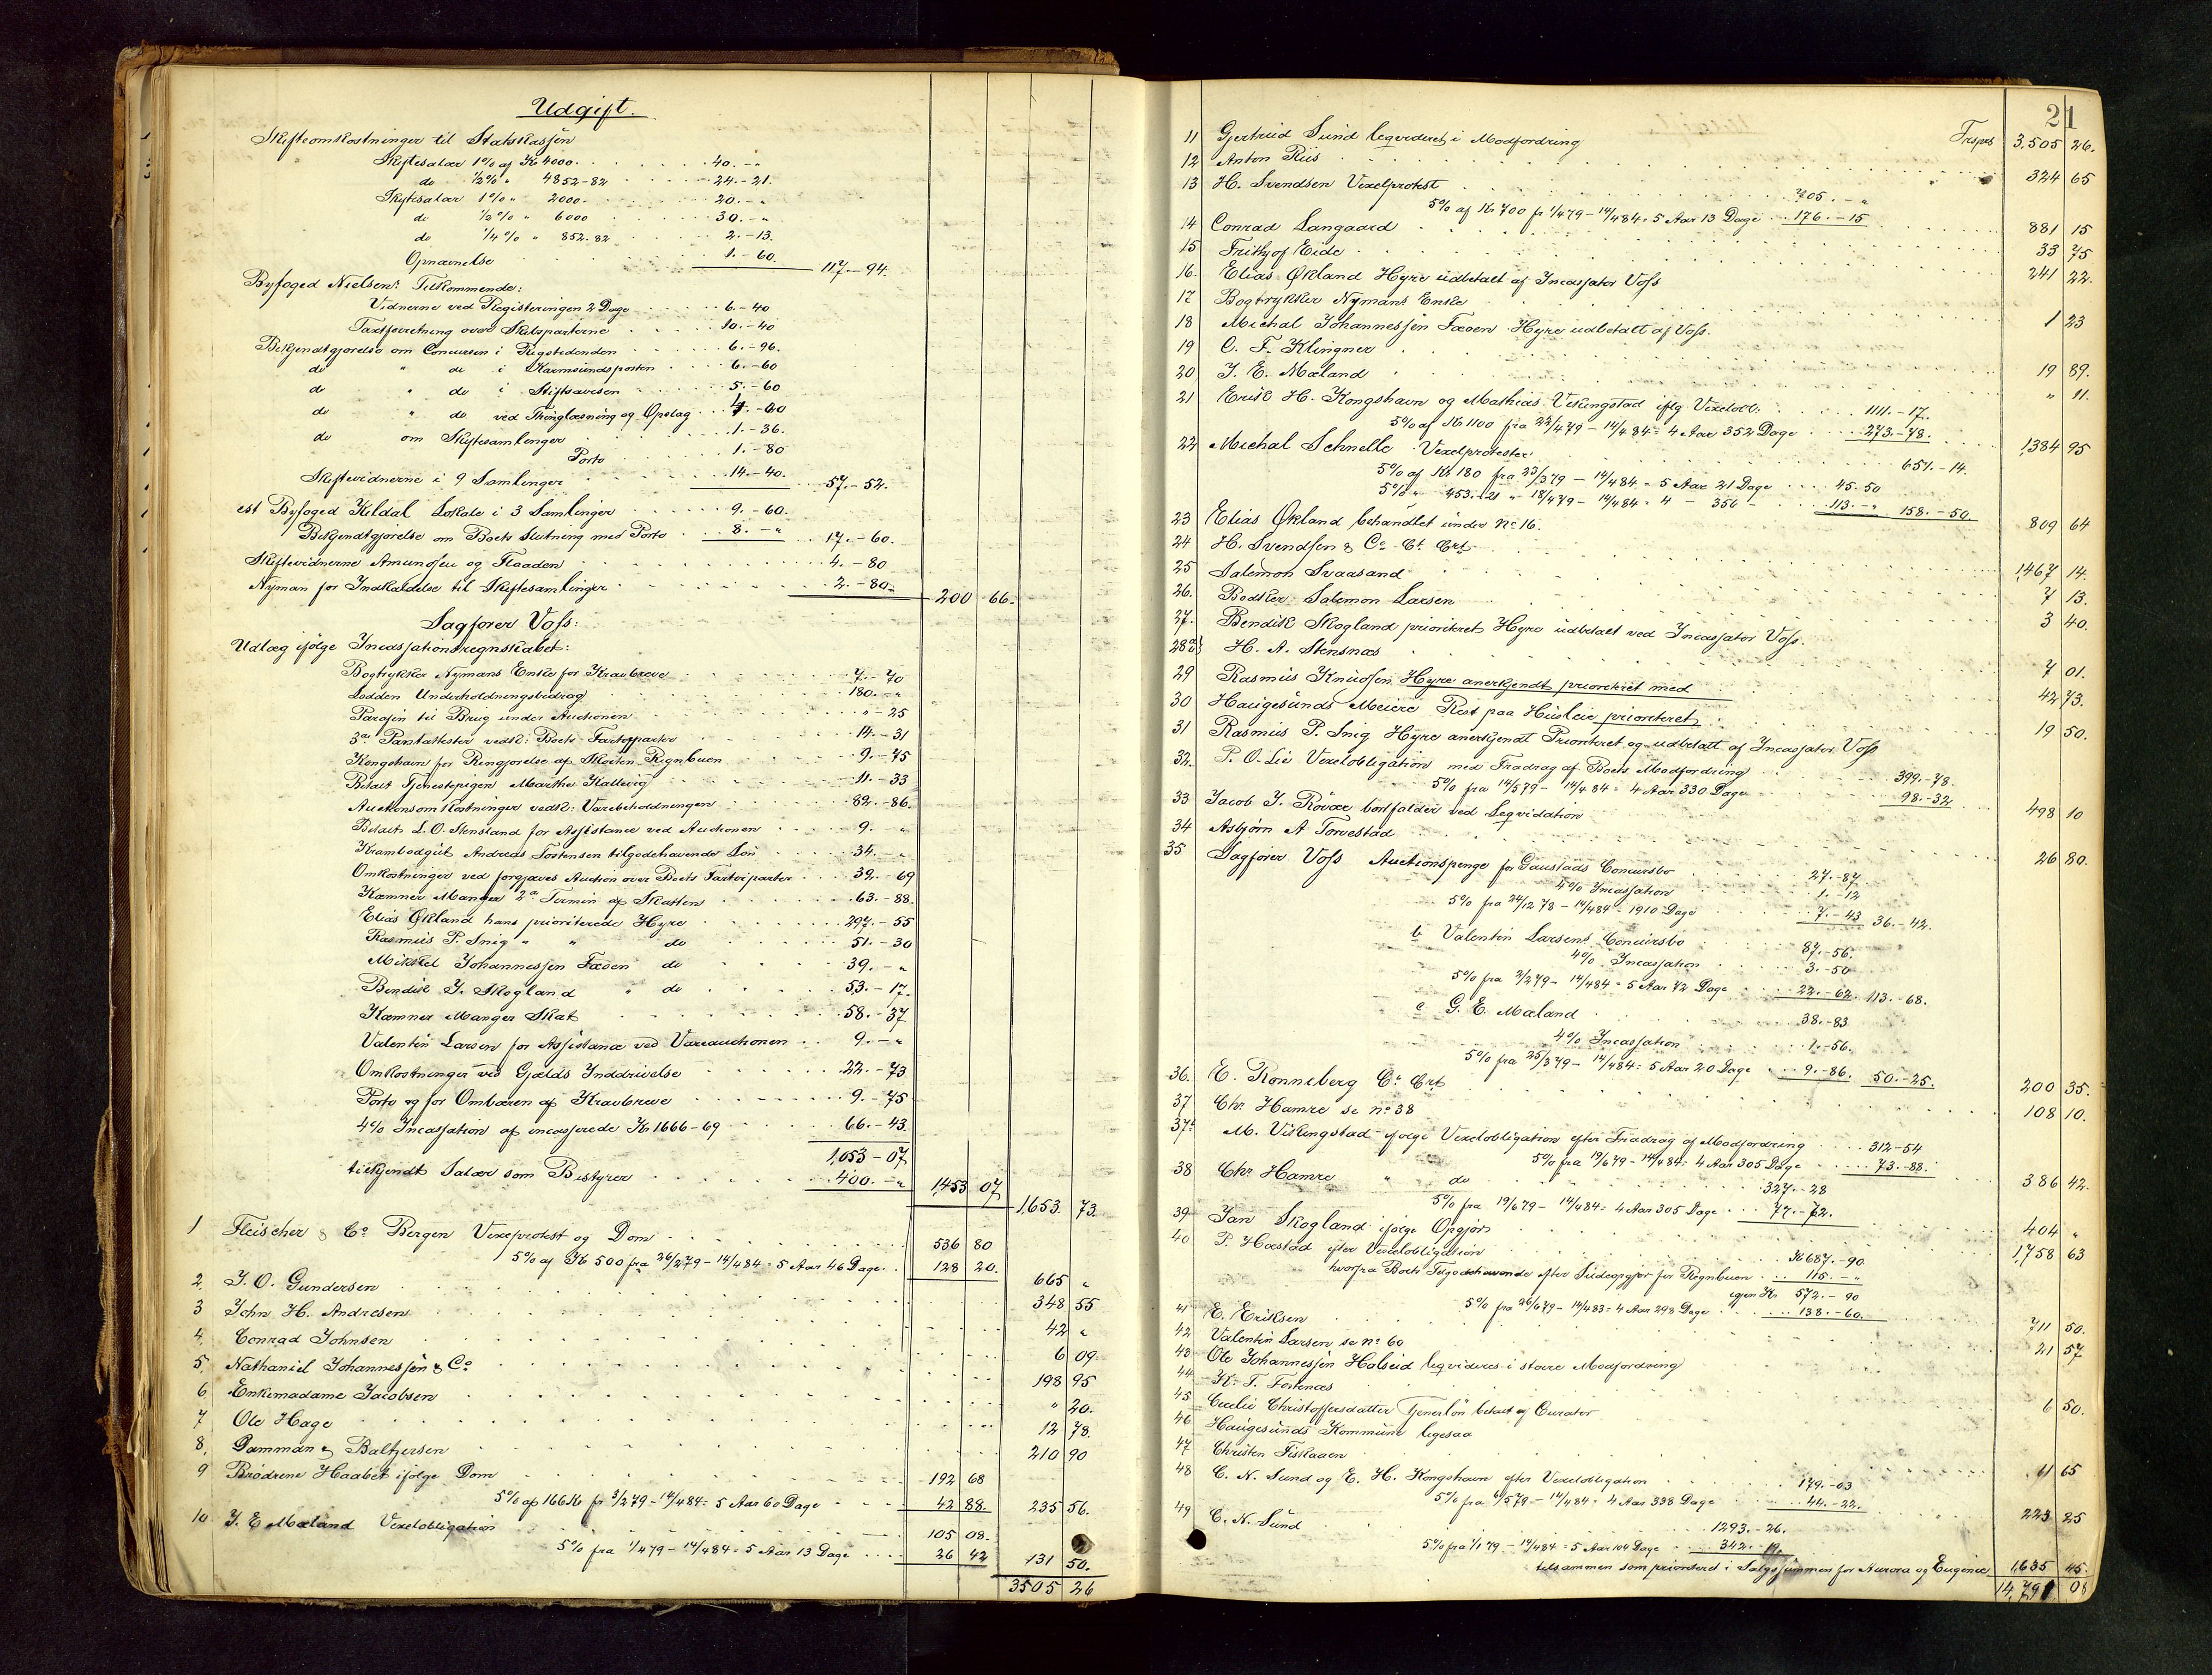 Udgift.
Skifteomkostninger til Statskassen
Skiftesalær 1% af Kr 4000. 40.-"
do ½% " 4852-82 24.-21.
Skiftesalær 1% " 2000. 20.-"
do ½% " 6000 30.-"
do ¼% " 852.82 2.-13.
Opnævnelse 1.-60. 117.-94.
Byfoged Nielsen: Tilkommende:
Vidnerne ved Registeringen 2 Dage 6.-40
Taxtforretning over Skibsparterne 10.-40
Bekjendtgjørelse om Concursen i Rigstidenden 6.-96.
do " do i Karmsundsposten 6.-60
do " do i Stiftsavisen 5.-60
do " do ved Thinglæsning og Opslag 4.-00
do om Skiftesamlinger 1.-36.
Porto 1.-80
Skiftevidnerne i 9 Samlinger 14.-40. 57.-52.
est Byfoged Kildal Lokale i 3 Samlinger 9.-60.
Bekjendtgjørelse om Boets Slutning med Porto 8.-" 17.-60.
Skiftevidnerne Amundsen og Flaaden 4.-80
Nyman for Indkaldelse til Skiftesamlinger 2.-80. 200 66.
Sagfører Voss:
Udlæg ifølge Incassationsregnskabet:
Bogtrykker Nymans Enke for Kravbreve 7.-70
Lodden Underholdningsbidrag 180.-"
Parafin til Brug under Auctionen "-25
3de Pantattester vedk: Boets Fartøiparter 14.-31
Kongshavn for Rengjørelse af Skøiten Regnbuen 9.-75
Betalt Tjenestepigen Marthe Kallevig 11.-33
Auctionsomkostninger vedk: Varebeholdningen 82.-86.
Betalt L. O. Stensland for Assistance ved Auctionen 9.-"
Krambodgut Andreas Torstensen tilgodehavende Løn 34.-"
Omkostninger ved forgjæves Auction over Boets Fartøiparter 32.-69
Kæmner Manger 2de Termin af Skatten 63.-88.
Elias Økland hans prioriterede Hyre 297.-55
Rasmus P. Snig " " do 51.-30
Mikkel Johannessen Fæøen do 39.-"
Bendik J. Skogland " do 53.-17.
Kæmner Manger Skat 58.-37
Valentin Larsen for Assistance ved Vareauctionen 9.-"
Omkostninger ved Gjælds Inddrivelse 22.-73
Porto og for Ombæren af Kravbreve 9.-75
4% Incassation af incasserede Kr 1666-69 66.-43.
1,053-07
tilkjendt Salær som Bestyrer 400.-" 1,453 07
1,653. 73.
1 Fleischer & Co Bergen Vexelprotest og Dom 536 80
5% af Kr 500 fra 26/2 79 - 14/4 84 = 5 Aar 46 Dage. 128 20. 665 "
2. J. O. Gundersen 348 55
3 John H. Andresen 42 "
4. Conrad Johnsen 6 09.
5. Nathaniel Johannessen & Co 198 95
6 Enkemadame Jacobsen " 20.
7 Ole Hage 12 78.
8. Damman & Baltzersen 210 90
9 Brødrene Haabet ifølge Dom 192 68
5% af 166 Kr fr 3/2 79 - 14/4 84 = 5 Aar 60 Dage 42 88. 235 56.
10. J. E. Mæland Vexelobligation 105 08.
5% fra 1/4 79 - 14/4 84 = 5 Aar 13 Dage 26 42 131 50.
3505 26
21
Trspt 3,505 26.
11 Gjertrud Sund leqvideret i Modfordring
12 Anton Riis 324 65
13 H. Svendsen Vexelprotest 705.-"
5% af Kr 700 fr 1/4 79 - 14/4 84 = 5 Aar 13 Dage 176.-15 881 15
14 Conrad Langaard 33 75
15 Frithjof Eide 241 22.
16. Elias Økland Hyre udbetalt af Incassator Voss
17 Bogtrykker Nymans Enke 1 23
18 Michal Johannessen Fæøen Hyre udbetalt af Voss.
19 C. F. Klingner 19 89.
20 J. E. Mæland " 11.
21 Erik H. Kongshavn og Mathias Vikingstad iflg Vexelobl: 1111.-17.
5% af Kr 1100 fra 22/4 79 - 14/4 84 = 4 Aar 352 Dage 273.-78. 1,384 95
22 Michal Schnelle Vexelprotester 651.-14.
5% af Kr 180 fra 23/3 79 - 14/4 84 = 5 Aar 21 Dage 45.50
5% " 453.-21 " 18/4 79 - 14/4 84 = 4 - 356 - 113.-" 158.-50. 809 64
23 Elias Økland behandlet under No 16.
24 H. Svendsen & Co Ct Crt 1,467 14.
25 Salemon Svaasand 7 13.
26. Bødker Salemon Larsen 3 40.
27. Bendik Skogland prioriteret Hyre udbetalt ved Incassator Voss.
28 a b H. A. Stensnæs 7 01.
29 Rasmus Knudsen Hyre anerkjendt prioriteret med 42 73.
30 Haugesunds Meieri Rest paa Husleie prioriteret 19 50.
31 Rasmus P. Snig Hyre anerkjendt Prioriteret og udbetalt af Incassator Voss
32. P. O. Lie Vexelobligation med Fradrag af Boets Modfordring 399.-78.
5% fra 14/5 79 - 14/4 84 = 4 Aar 330 Dage 98.-32 498 10
33 Jacob J. Røvær bortfalder ved Leqvidation
34 Asbjørn A Torvestad 26 80.
35 Sagfører Voss Auctionspenge for Gaustads Concursbo 27.-87.
4% Incassation 1.-12
5% fra 24/12 78 - 14/4 84 = 1910 Dage 7.-43 36.-42.
b Valentin Larsens Concursbo 87.-56.
4% Incassation 3.-50
5% fra 2/2 79 - 14/4 84 = 5 Aar 72 Dage 22.-62. 113.-68.
c G. E. Mæland 38.-83
4% Incassation 1.-56.
5% fra 25/3 79 - 14/4 84 = 5 Aar 20 Dage 9.-86. 50.-25. 200 35.
36. E. Ronneberg Ct Crt 108 10.
37 Chr Hamre se no 38
37a M. Vikingstad ifølge Vexelobligation efter Fradrag af Modfordring 312-54
5% fra 19/6 79 - 14/4 84 = 4 Aar 305 Dage 73.-88. 386 42.
38 Chr Hamre " do 327.-28
5% fra 19/6 79 - 14/4 84 = 4 Aar 305 Dage 77.-72. 404 "
39 Jan Skogland ifølge Opgjør 1,758 63
40 P. Hæstad efter Vexelobligation Kr 687.-90
hvorfra Boets Tilgodehavende efter Sildeopgjør for Regnbuen 115.-"
igjen Kr 572.-90
5% fra 26/6 79 - 14/4 83 = 4 Aar 298 Dage 138.-60. 711 50.
41 E. Eriksen 21 57
42 Valentin Larsen se no 60
43 Ole Johannessen Holseid leqvideres i større Modfordring
44 K. T. Fosenæs 6 50.
45 Cecilie Christoffersdatter Tjenerløn betalt af Curator
46 Haugesunds Kommune ligesaa
47 Christen Fiskaaen 11 65
48 C. N. Sund og E. H. Kongshavn efter Vexelobligation 179.-03
5% fra 6/5 79 - 14/4 84 = 4 Aar 338 Dage 44.-22. 223 25
49 C. N. Sund 1293.-26.
5% fra 1/1 79 - 14/4 84 = 5 Aar 104 Dage 342.-19.
tilsammen som prioriteret i Salgssummen for Aurora og Eugenie 1,635 45.
14,791 08